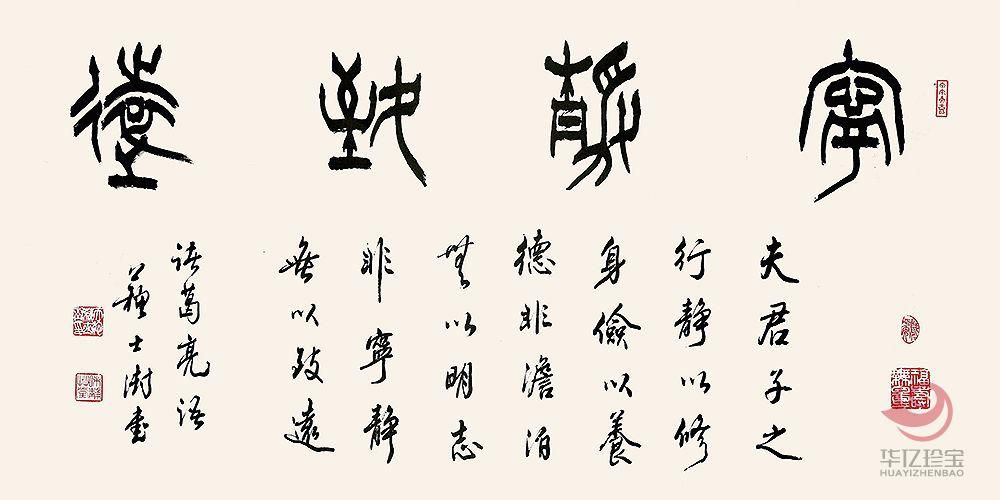 寧靜致遠
夫君子之
行静以修
身儉以養
德非澹泊
無以明志
非寧静
無以致遠
诸葛亮语
蘇士澍書
华亿珍宝
HUAYIZHENBAO